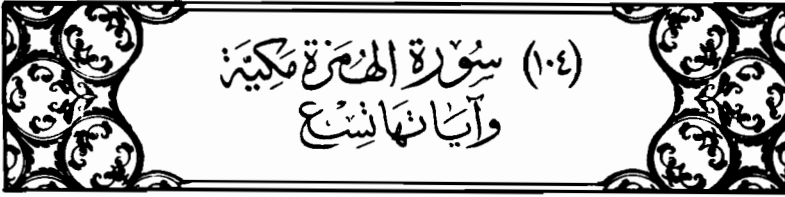 (١٠٤) سُوْرَة الهُمَزَة مَكِيَّة
وآيَاتهَا تِسْع